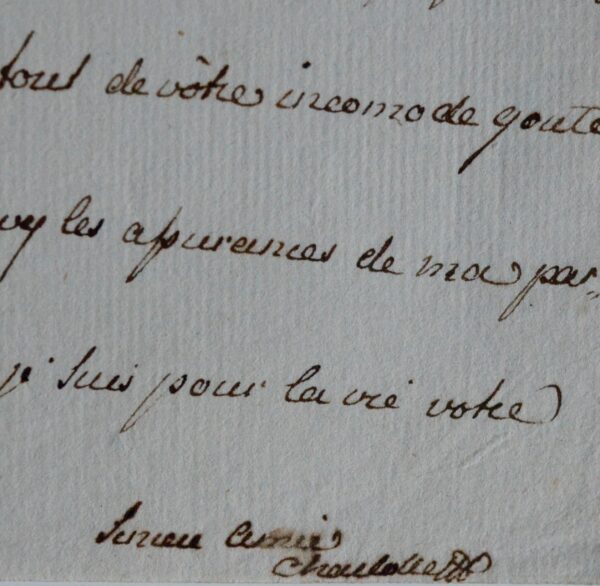 tous de vôtre incomode goute
vy les assurances de ma par=
je suis pour la vie votre
amie
Charlotte